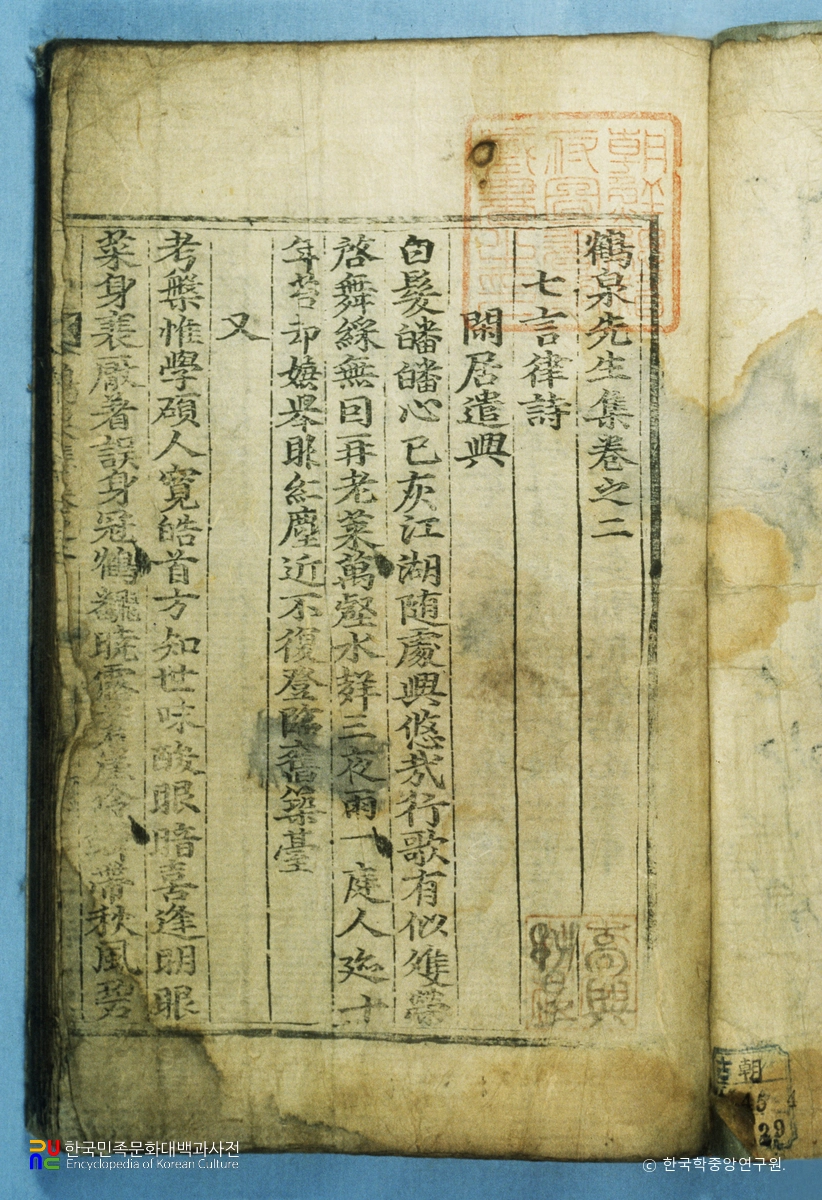 鶴泉先生集卷之二
七言律詩
閑居遣興
白髮皤皤心已灰江湖随處興悠哉行歌有似雙榮
啓舞綵無回再老萊萬壑水聲三夜雨一庭人迹寸
年苔却嫌擧眼紅塵近不復登臨舊築臺
又
考槃惟學碩人寬皓首方知世味酸眼暗喜逢明眼
菜身衰厭着誤身冠鶴翻曉露冷帶秋風碧
朝
45 4
29
한국민족문화대백과사전
Encyclopedia of Korean Culture
ⓒ 한국학중앙연구원.